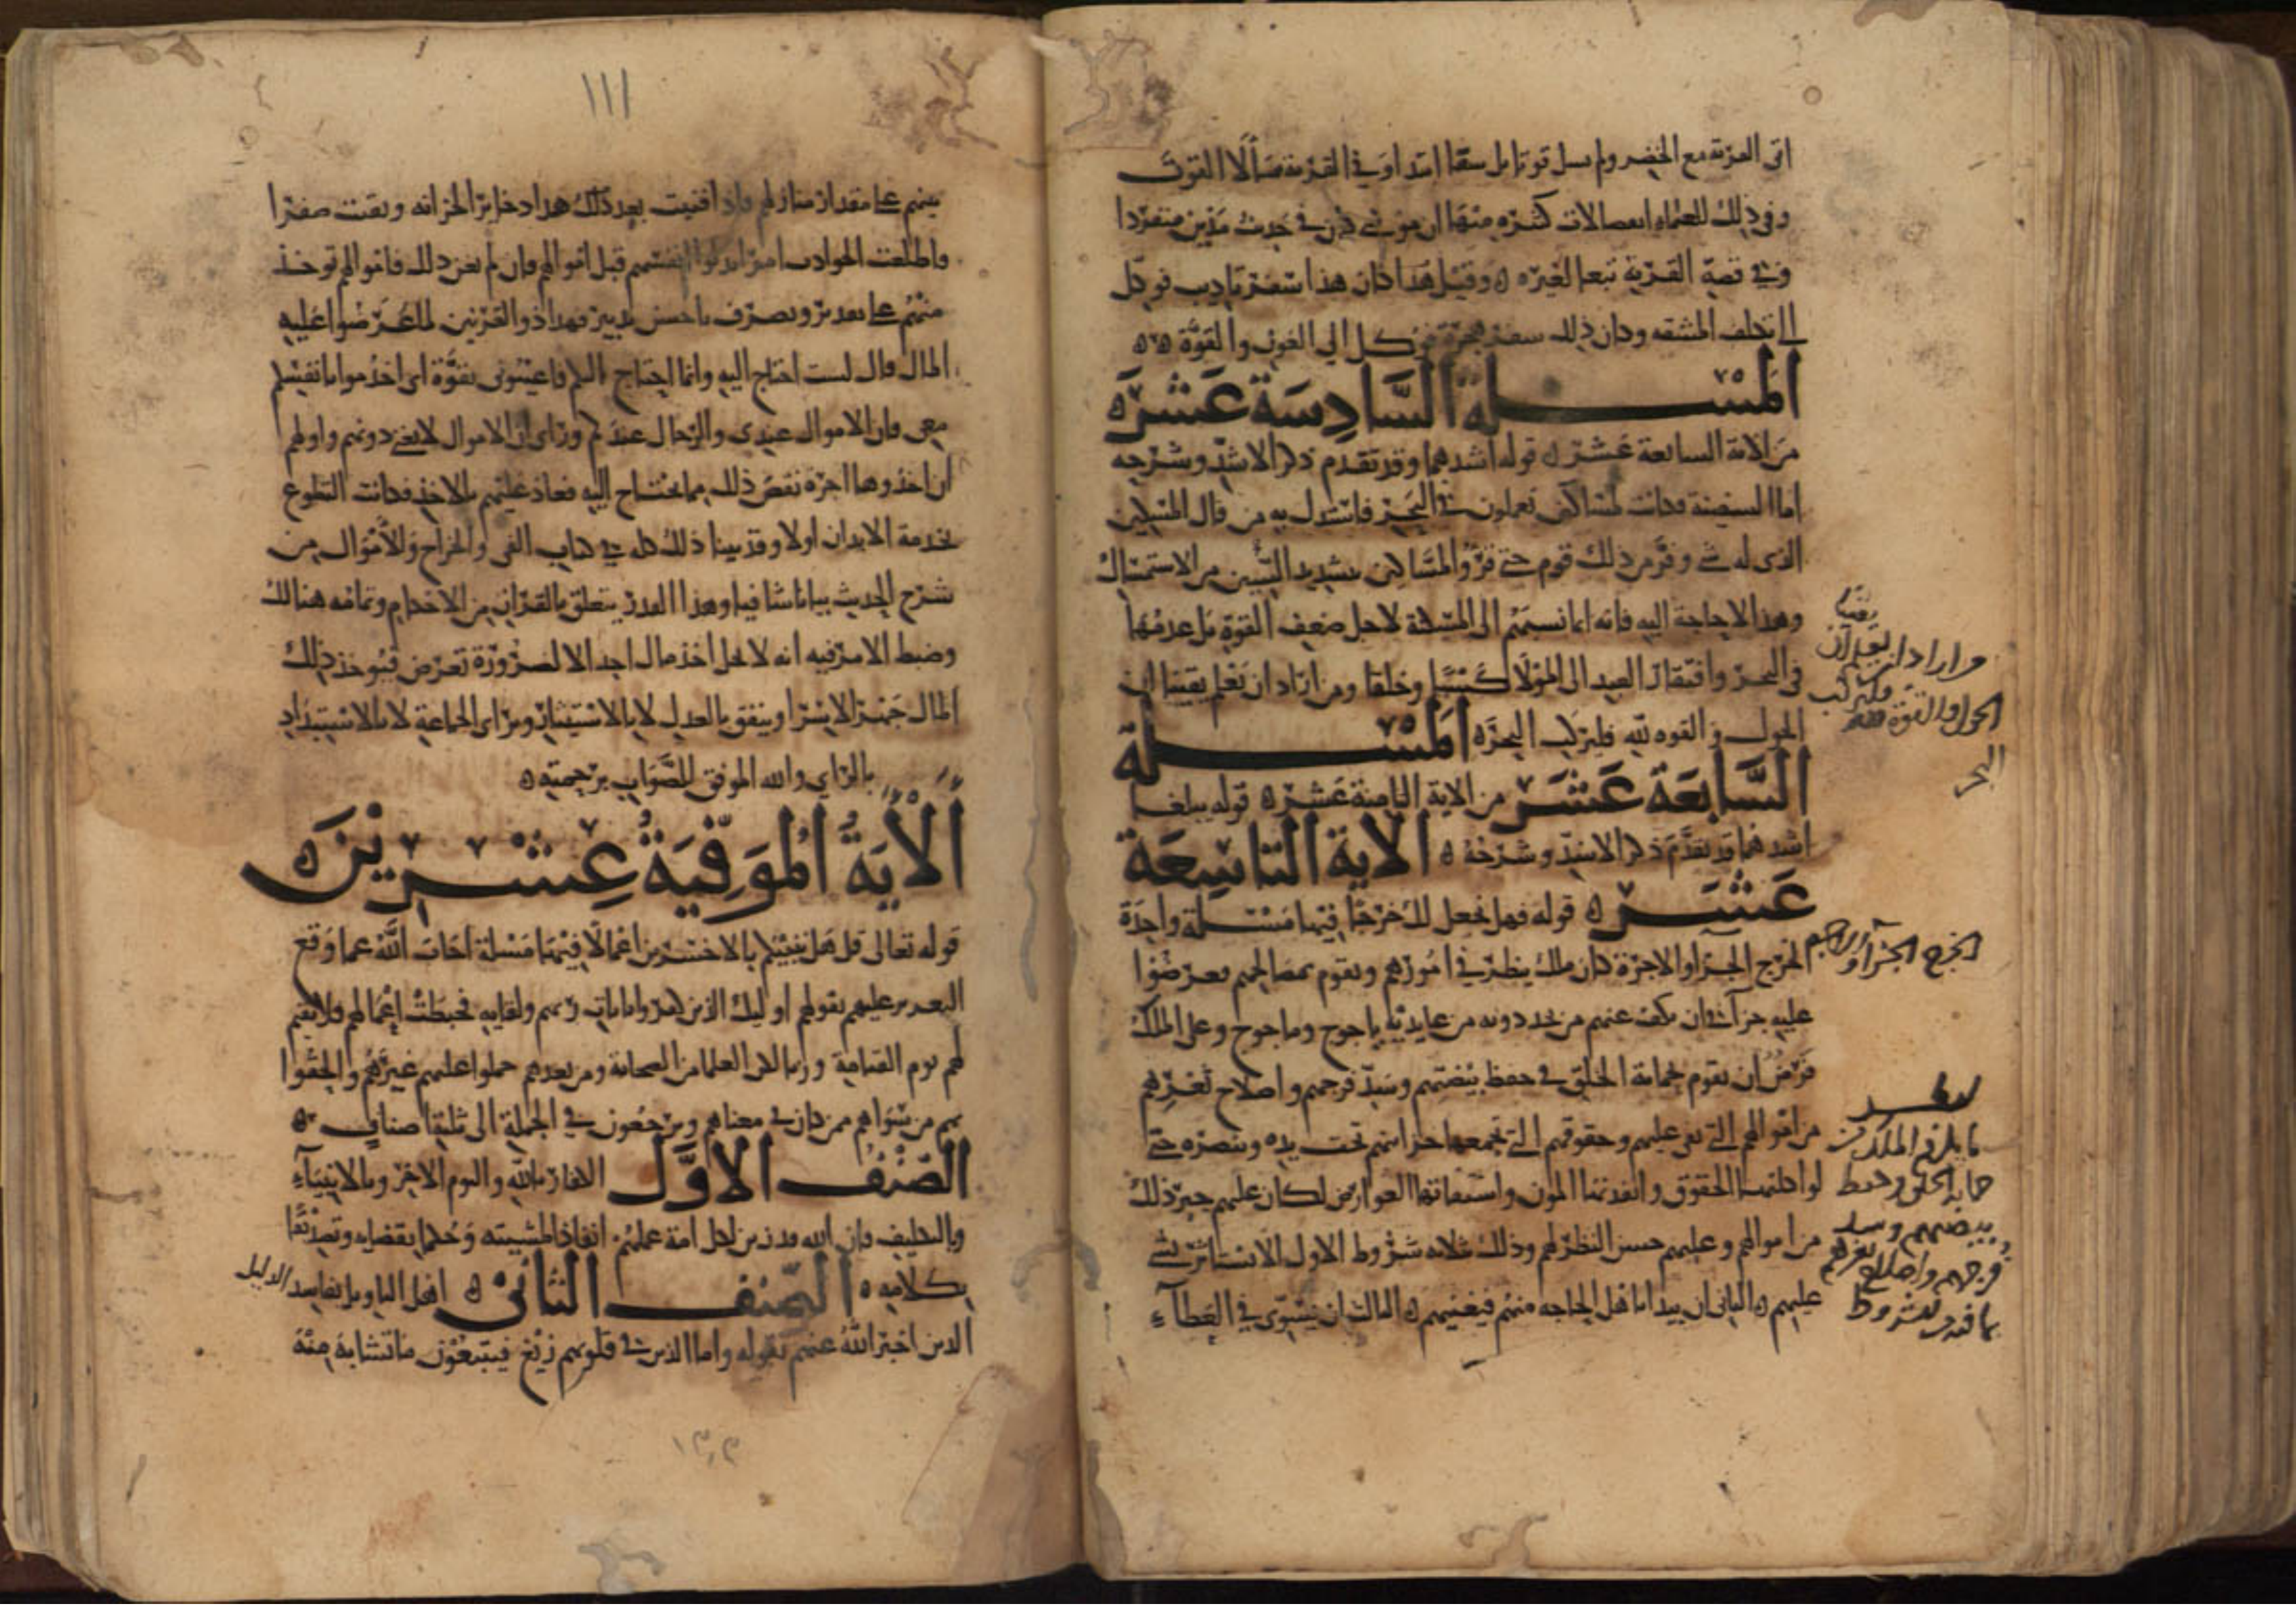 اتى القرية مع الخضر ولم يسل قوتا بل سقيا ابتدا وفي القرية سألا القوت
وفي ذلك للعلماء انفصالات كثيره منها ان موسى كان في حديث مدين منفردا
وفي قصة القرية تبعا لغيره ه وقيل هذا كان هذا سفر تاديب فوكل
الى تكلف المشقه وكان ذلك سفر هجرة فوكل الى العون والقوة ه
المسلة السادسة عشرة
من الاية السابعة عشر ه قوله أشدهما وقد تقدم ذكر الاشد وشرحه
اما السفينة فكانت لمساكين يعملون في البحر فاستدل به من قال المسكين
الذي له شي وفر من ذلك قوم حتى قرؤا لمساكين بتشديد السين من الاستمساك
وهذا لا حاجة اليه فانه انما نسبهم الى المسكنة لاجل ضعف القوة بل عدمها
في البحر وافتقار العبد الى المولا كسبا وخلقا ومن اراد ان يعلم يقينا ان
الحول والقوه لله فليركب البحر ه المسلة
السابعة عشر من الاية الثامنة عشر ه قوله يبلغا
اشدهما قد تقدم ذكر الاشد وشرحه ه الاية التاسعة
عشر ه قوله فهل نجعل لك خرجا فيها مسلة واحدة
الخرج الجزا والاجرة كان ملك ينظر في امورهم ويقوم بمصالحهم فعرضوا
عليه جزآ في ان يكف عنهم من عادية ياجوج وماجوج وعلى الملك
فرض ان يقوم بحماية الخلق في حفظ بيضتهم وسد فرجهم واصلاح ثغرهم
من اموالهم التي تفي عليهم وحقوقهم التي تجمعها خزانتهم تحت يده ونضره حتى
لو اكلتها الحقوق وانفدتها المون واستنفاتها العوارض لكان عليهم جبر ذلك
من اموالهم وعليهم حسن النظر لهم وذلك بثلاثة شروط الاول الا يستاثر بشي
عليهم ه الثاني ان يبدا باهل الحاجه منهم فيغنيهم ه الثالث ان يسوى في العطآء
من اراد ان يعلم ان
يقينا
الحول والقوة لله
فليركب
البحر
الخرج الجزآ والاجرة
ما يلزم الملك من
حماية الخلق وحفظ
بيضتهم وسد
فرجهم واصلاح ثغرهم
١١١
بينهم على مقدار منازلهم فاذا فنيت بعد ذلك هذا دخاير الخزانه وبقيت صفرا
فاطلعت الحوادث امرا بذلوا انفسهم قبل اموالهم فان لم يغن ذلك فاموالهم توخذ
منهم على تقدير وتصرف باحسن تدبير فهذا ذو القرنين لما عرضوا عليه
المال قال لست احتاج اليه وانما احتاج اليكم فاعينوني بقوة اي اخدموا بانفسكم
معي فان الاموال عندي والرجال عندكم ورأى ان الاموال لا تغني دونهم وانهم
ان اخذوها اجرة نقص ذلك مما يحتاج اليه فعاد عليهم بالاخذ فكانت التطوع
بخدمة الابدان اولا وقد بينا ذلك كله في كتاب الفي والخراج والأموال من
شرح الحديث بيانا شافيا وهذا القدر يتعلق بالقران من الاحكام وتمامه هنالك
وضبط الامر فيه انه لا يحل اخذ مال احد الا لضرورة تعرض فيوخذ ذلك
المال جهرا لا سرا وينفق بالعدل لا بالاستيثار وبراي الجماعة لا بالاستبداد
بالراي والله الموفق للصواب برحمته ه
ألأية ألموفية عشرين ه
قوله تعالى قل هل ننبئكم بالاخسرين اعمالا فيها مسلة اجاب الله عما وقع
التقرير عليهم بقولهم اوليك الذين كفروا بايات ربهم ولقايه فحبطت اعمالهم فلا نقيم
لهم يوم القيامة وزنا لكن العلما من الصحابة ومن بعدهم حملوا عليهم غيرهم والحقوا
بهم من سواهم ممن كان في معناهم ويرجعون في الجملة الى ثلثة اصناف ه
الصنف الاول الكفار بالله واليوم الاخر وبالانبيآء
والتكليف فان الله قد زين لكل امة عملهم انفاذا لمشيته وحكما بقضايه وتصديقا
بكلامه ه الصنف الثاني ه اهل التاويل بفاسد الدليل
الدين اخبر الله عنهم بقوله واما الذين في قلوبهم زيغ فيتبعون ما تشابه منه